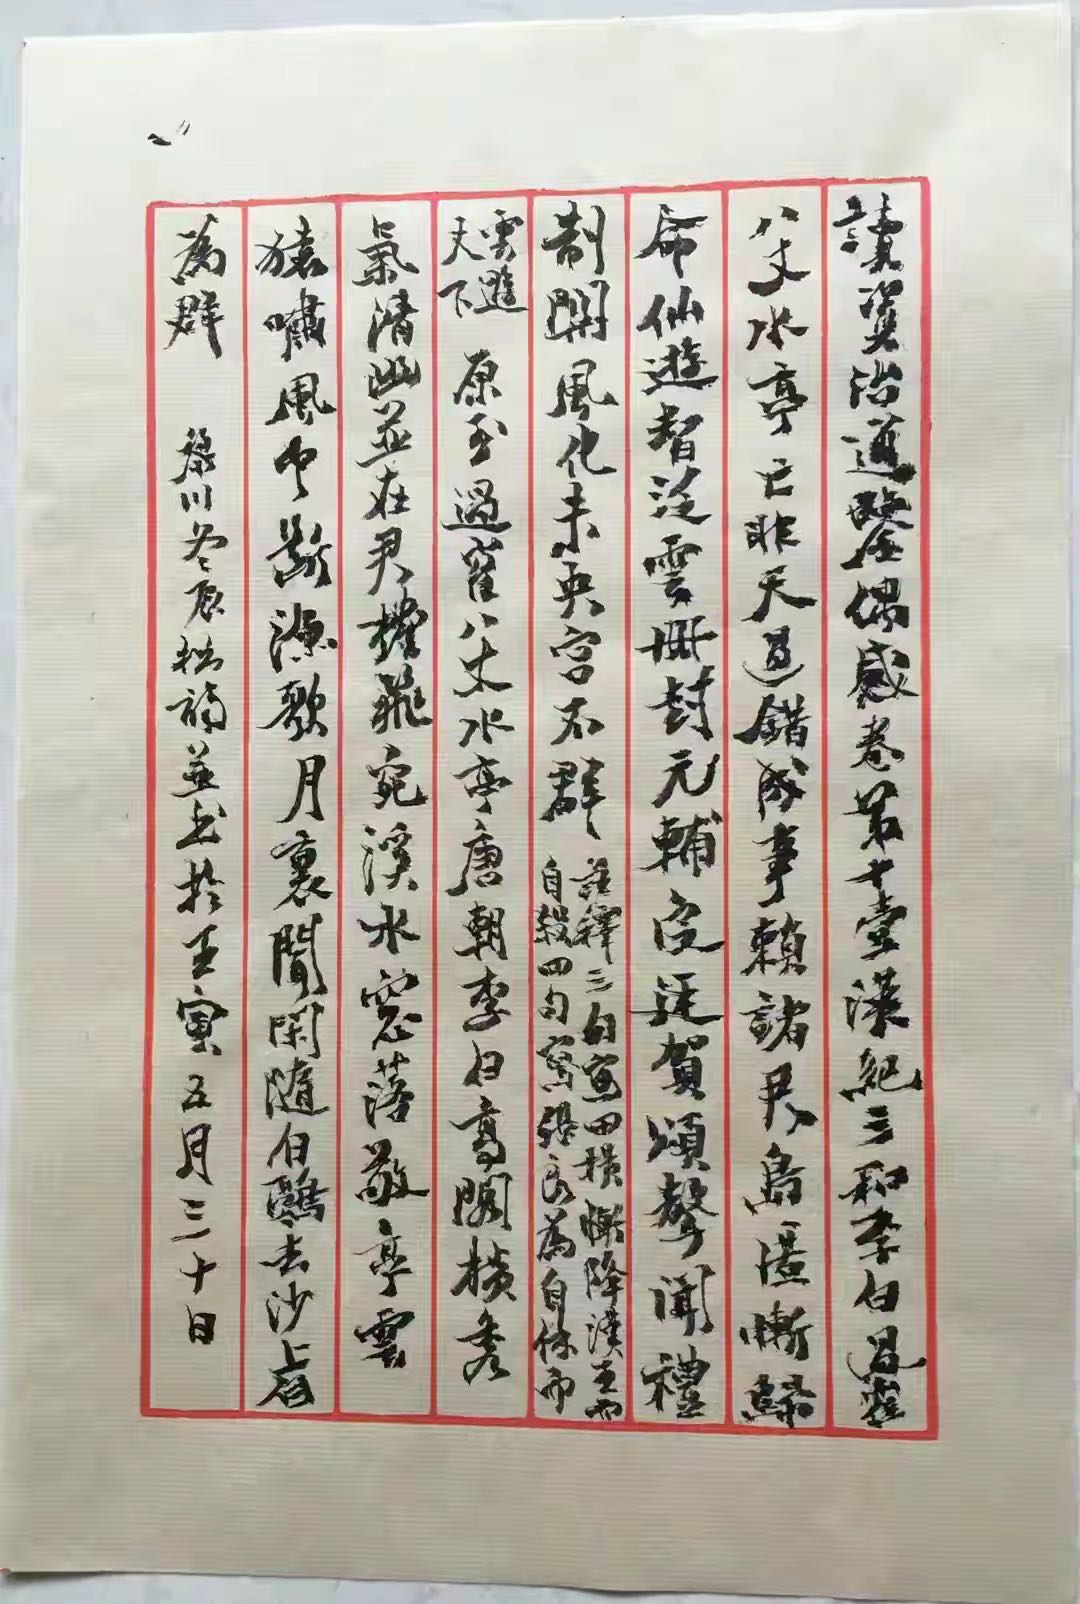 讀資治通鑒偶感卷第十壹漢紀三和李白過崔
八丈水亭 亡非天過錯成事賴諸君島匿慚歸
命仙遊智泛雲冊封元輔定廷賀頌聲聞禮
制開風化未央宮不群
註釋三句寫田橫慚降漢王而
自殺四句寫張良為自保而
雲遊
天下
原玉過崔八丈水亭唐朝李白高閣橫秀
氣清幽並在君檐飛宛溪水窓落敬亭雲
猿嘯風中斷漁歌月裏聞閑隨白鷗去沙上自
為群
川冬辰拙詩並書於壬寅五月三十日